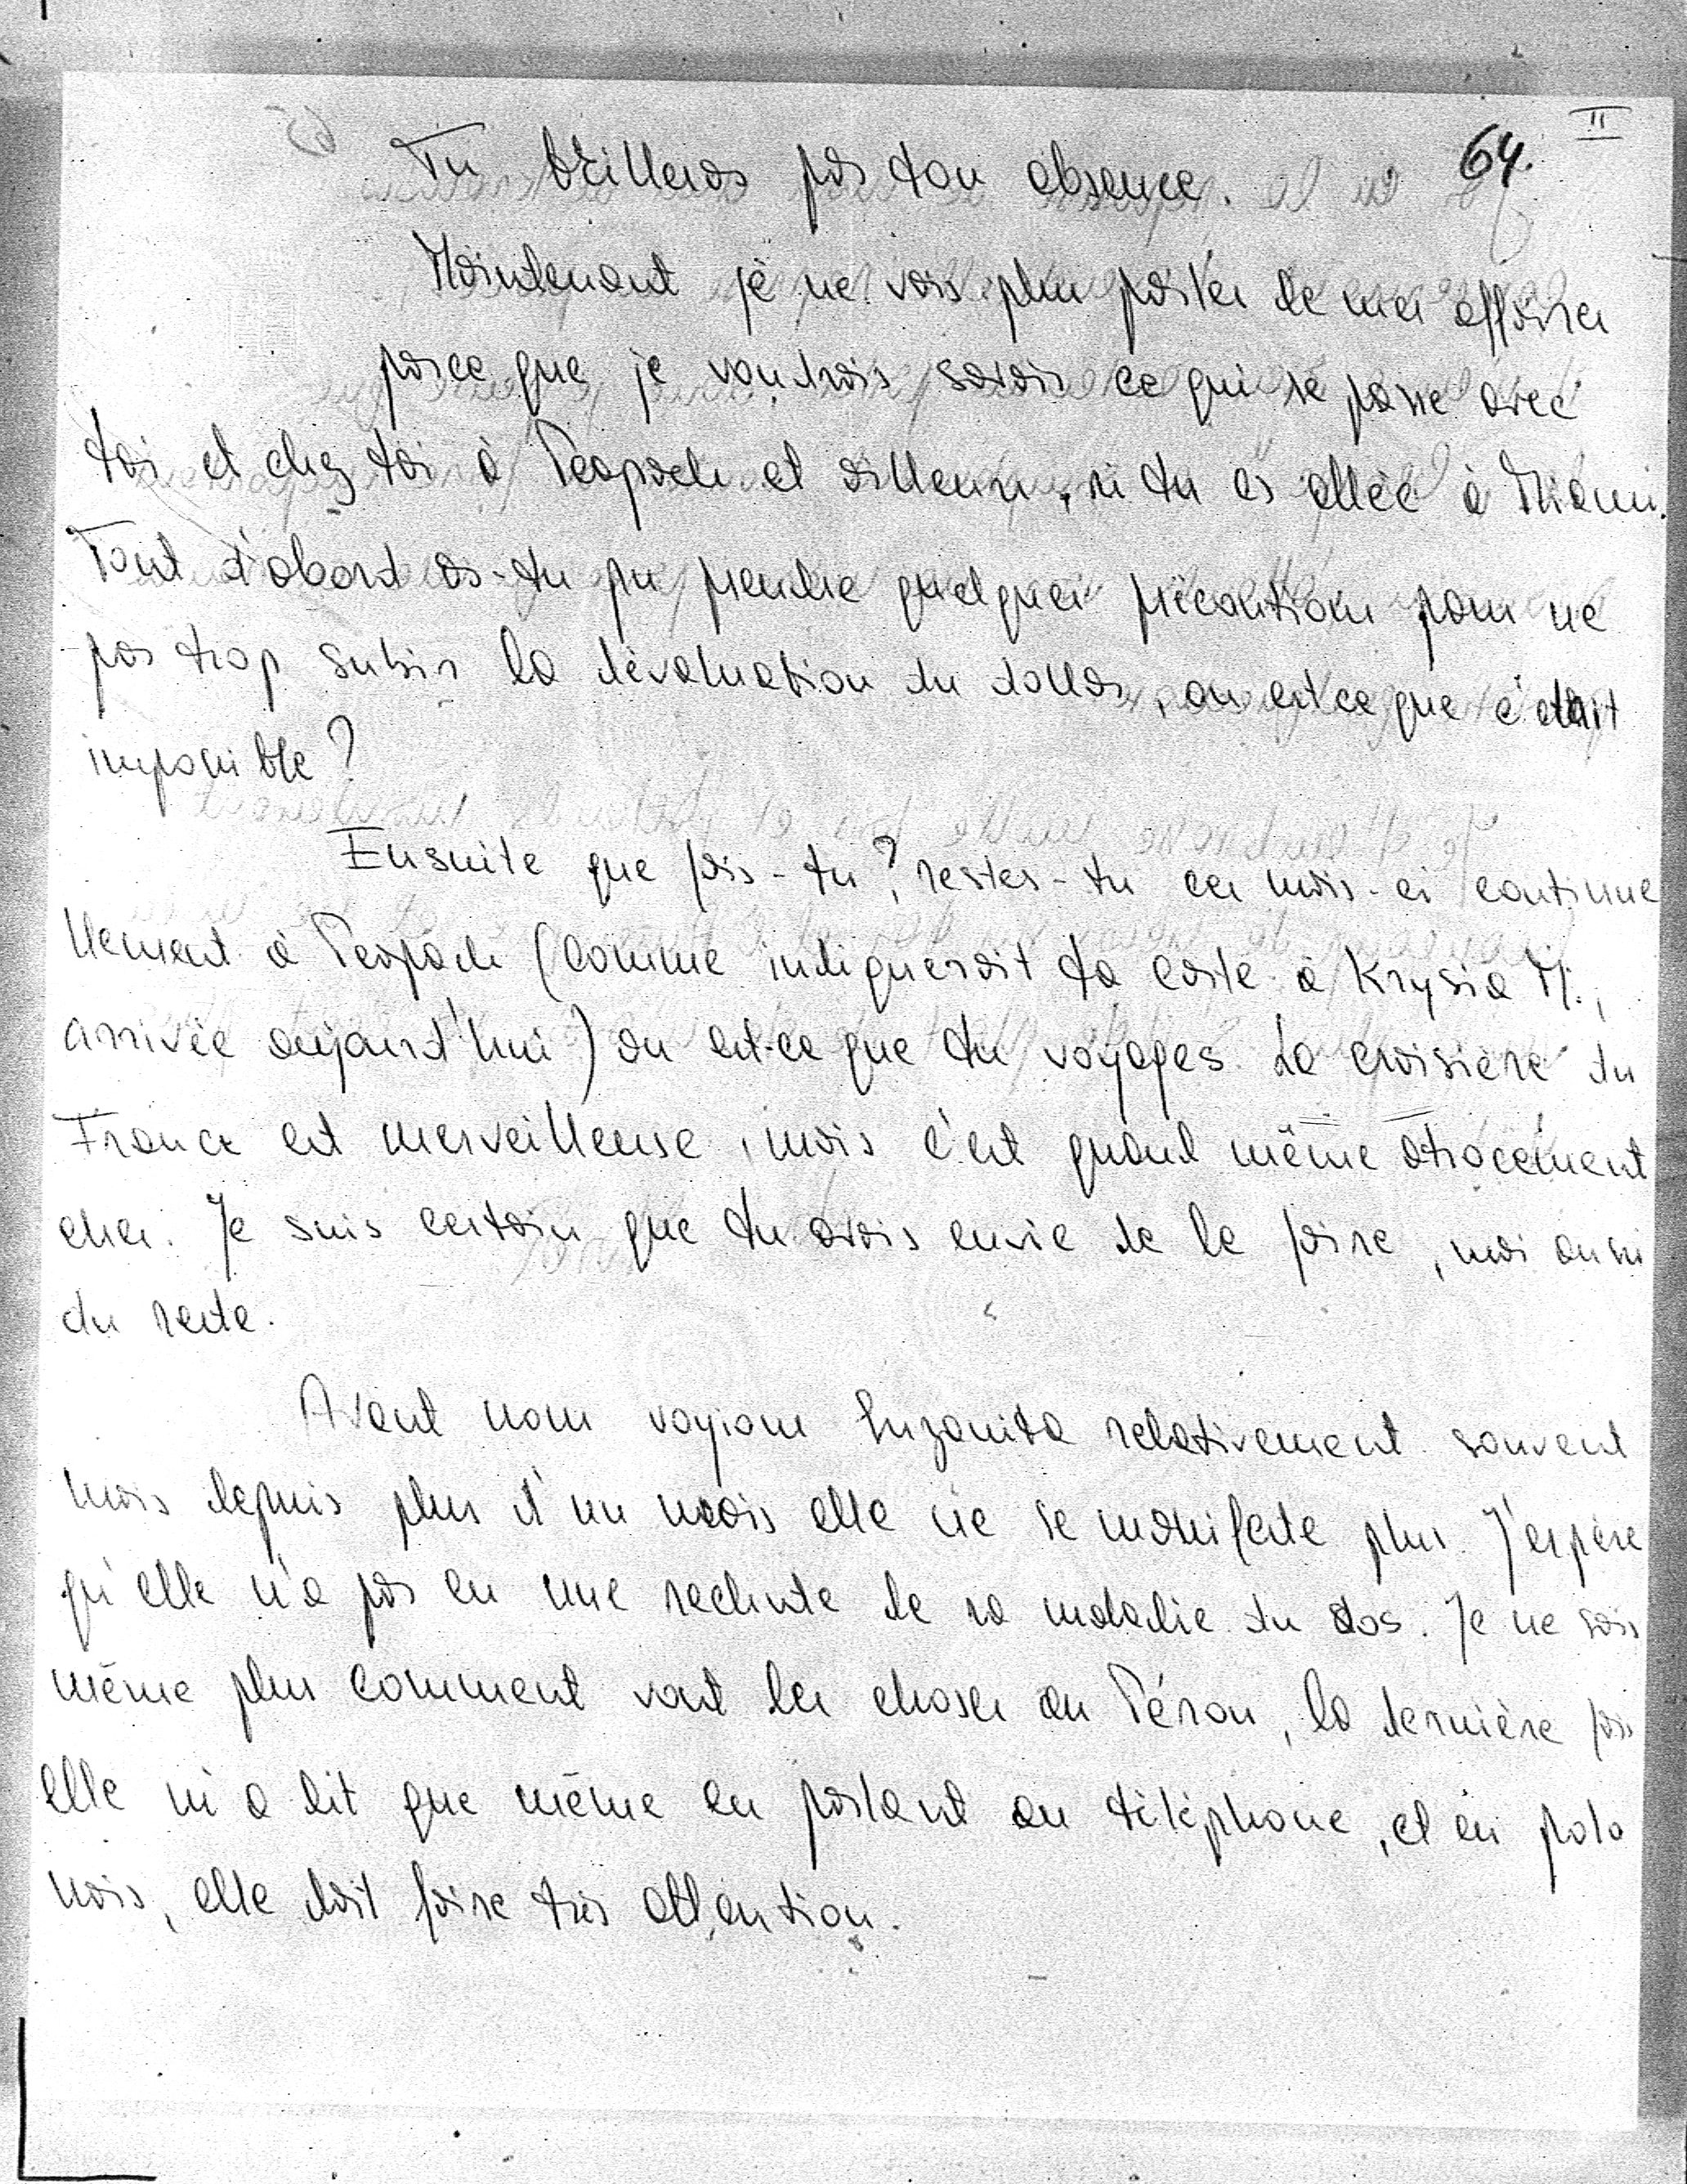 II
64.
Tu brilleras par ton absence.
Maintenant je ne vais plus parler de mes affaires
parce que je voudrais savoir ce qui se passe avec
toi et chez toi à Peapack et ailleurs, si tu es allée à Miami.
Tout d'abord as-tu pu prendre quelques précautions pour ne
pas trop subir la dévaluation du dollar, ou est ce que c'était
impossible?
Ensuite que fais-tu? restes-tu ces mois-ci continue
llement à Peapack (comme indiquerait ta carte à Krysia M.,
arrivée aujourd'hui) ou est-ce que tu voyages. La croisière du
France est merveilleuse, mais c'est quand même atrocement
cher. Je suis certain que tu avais envie de la faire, moi aussi
du reste.
Avant nous voyions Suzanita relativement souvent
mais depuis plus d'un mois elle ne se manifeste plus. J'espère
qu'elle n'a pas eu une rechute de sa maladie du dos. Je ne sais
même plus comment vont les choses au Pérou, la dernière fois
elle m'a dit que même en parlant au téléphone, et en polo
nais, elle doit faire très attention.